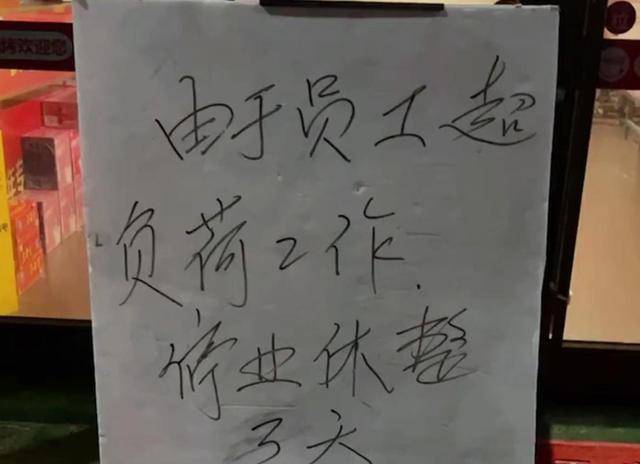 烤欢迎您
由于员工超
负荷工作.
停业休整
3天